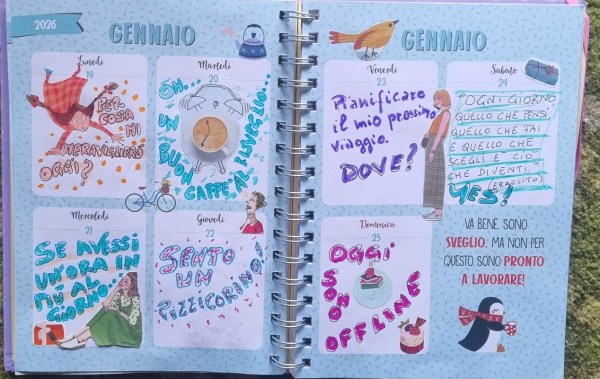 2026
GENNAIO
Lunedì
19
PER
COSA MI
MERAVIGLIERÒ
OGGI?
Martedì
20
OH...
UN
BUON
CAFFÈ AL RISVEGLIO...
Mercoledì
21
SE AVESSI
UN'ORA IN
PIÙ AL
GIORNO...
Giovedì
22
SENTO
UN
PIZZICORINO!
GENNAIO
Venerdì
23
Pianificare
il mio prossimo
viaggio.
DOVE?
Sabato
24
"OGNI GIORNO
QUELLO CHE PENSI,
QUELLO CHE FAI
E QUELLO CHE
SCEGLI E CIÒ
CHE DIVENTI."
(ERACLITO)
YES!
Domenica
25
OGGI
SONO
OFFLINE
VA BENE, SONO
SVEGLIO, MA NON PER
QUESTO SONO PRONTO
A LAVORARE!